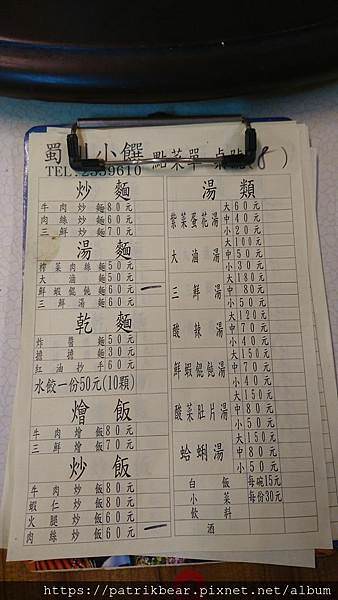 蜀 小饌 點菜單 桌號 8 )
TEL:2539610
炒麵
牛肉炒麵80元
肉絲炒麵60元
三鮮炒麵70元
湯麵
榨菜肉絲麵50元
大滷麵50元
鮮蝦餛飩麵60元
三鮮湯麵60元
乾麵
炸醬麵50元
擔擔麵30元
紅油抄手60元
水餃一份50元(10顆)
燴飯
牛肉燴飯80元
三鮮燴飯70元
炒飯
牛肉炒飯80元
蝦仁炒飯80元
火腿炒飯60元
肉絲炒飯60元
湯類
紫菜蛋花湯
大60元
中40元
小20元
大滷湯
大100元
中50元
小30元
三鮮湯
大180元
中80元
小50元
酸辣湯
大120元
中70元
小40元
鮮蝦餛飩湯
大150元
中70元
小40元
酸菜肚片湯
大150元
中80元
小50元
蛤蜊湯
大150元
中80元
小50元
白飯 每碗15元
小菜 每份30元
飲料
酒
https://patrikbear.pixnet.net/album